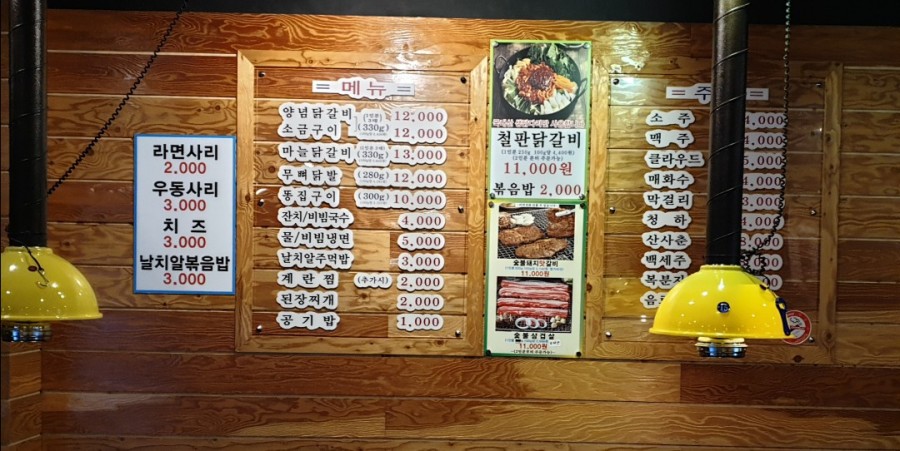 라면사리
2.000
우동사리
3.000
치즈
3.000
날치알볶음밥
3.000
= 메뉴 =
양념닭갈비 12.000
소금구이 (330g) 12.000
마늘닭갈비 (330g) 13.000
무뼈닭발 (280g) 12.000
똥집구이 (300g) 10.000
잔치/비빔국수 4.000
물/비빔냉면 5.000
날치알주먹밥 3.000
계란찜 (추가시) 2.000
된장찌개 2.000
공기밥 1.000
철판닭갈비
11,000원
볶음밥 2,000
숯불돼지맛갈비
11.000원
숯불삼겹살
11.000원
소주
맥주
클라우드
매화수
막걸리
청하
산사춘
백세주